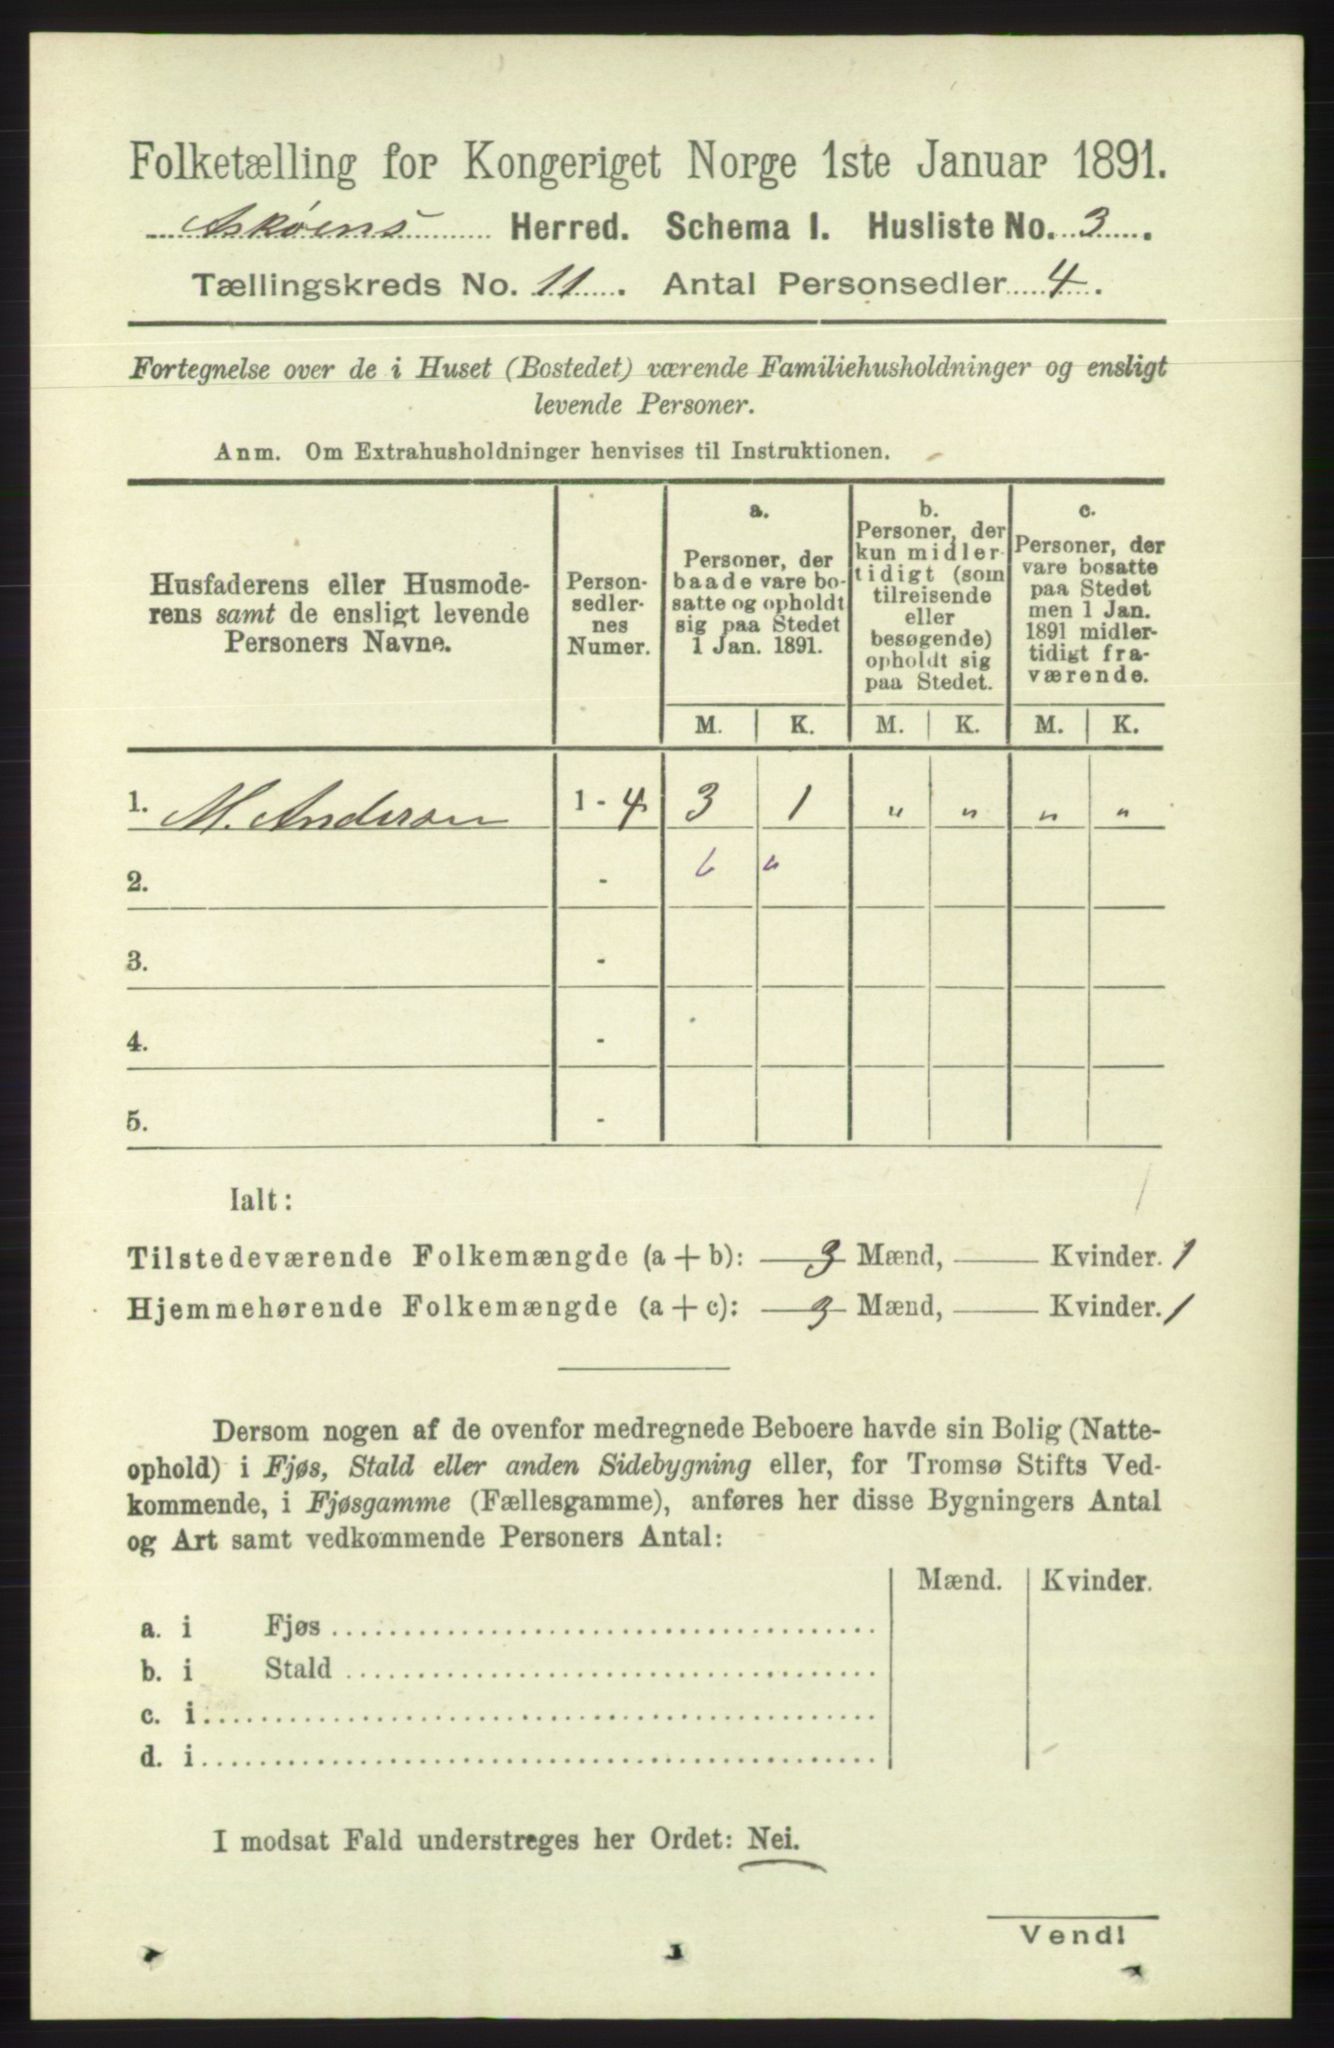 Folketælling for Kongeriget Norge 1ste Januar 1891.
Askøens Herred. Schema I. Husliste No. 3.
Tællingskreds No. 11. Antal Personsedler 4.
Fortegnelse over de i Huset (Bostedet) værende Familiehusholdninger og ensligt
levende Personer.
Anm. Om Extrahusholdninger henvises til Instruktionen.
Husfaderens eller Husmode-
rens samt de ensligt levende
Personers Navne.
Person-
sedler-
nes
Numer.
a.
Personer, der
baade vare bo-
satte og opholdt
sig paa Stedet
1 Jan. 1891.
b.
Personer, der
kun midler-
tidigt (som
tilreisende
eller
besøgende)
opholdt sig
paa Stedet.
c.
Personer, der
vare bosatte
paa Stedet
men 1 Jan.
1891 midler-
tidigt fra-
værende.
M. K. M. K. M. K.
1. M. Anderson 1 - 4 3 1 " " " "
2. - 6 "
3. -
4. -
5. -
Ialt:
Tilstedeværende Folkemængde (a + b): 3 Mænd, Kvinder. 1
Hjemmehørende Folkemængde (a + c): 3 Mænd, Kvinder. 1
Dersom nogen af de ovenfor medregnede Beboere havde sin Bolig (Natte-
ophold) i Fjøs, Stald eller anden Sidebygning eller, for Tromsø Stifts Ved-
kommende, i Fjøsgamme (Fællesgamme), anføres her disse Bygningers Antal
og Art samt vedkommende Personers Antal:
Mænd. Kvinder.
a. i Fjøs
b. i Stald
c. i
d. i
I modsat Fald understreges her Ordet: Nei.
Vend!